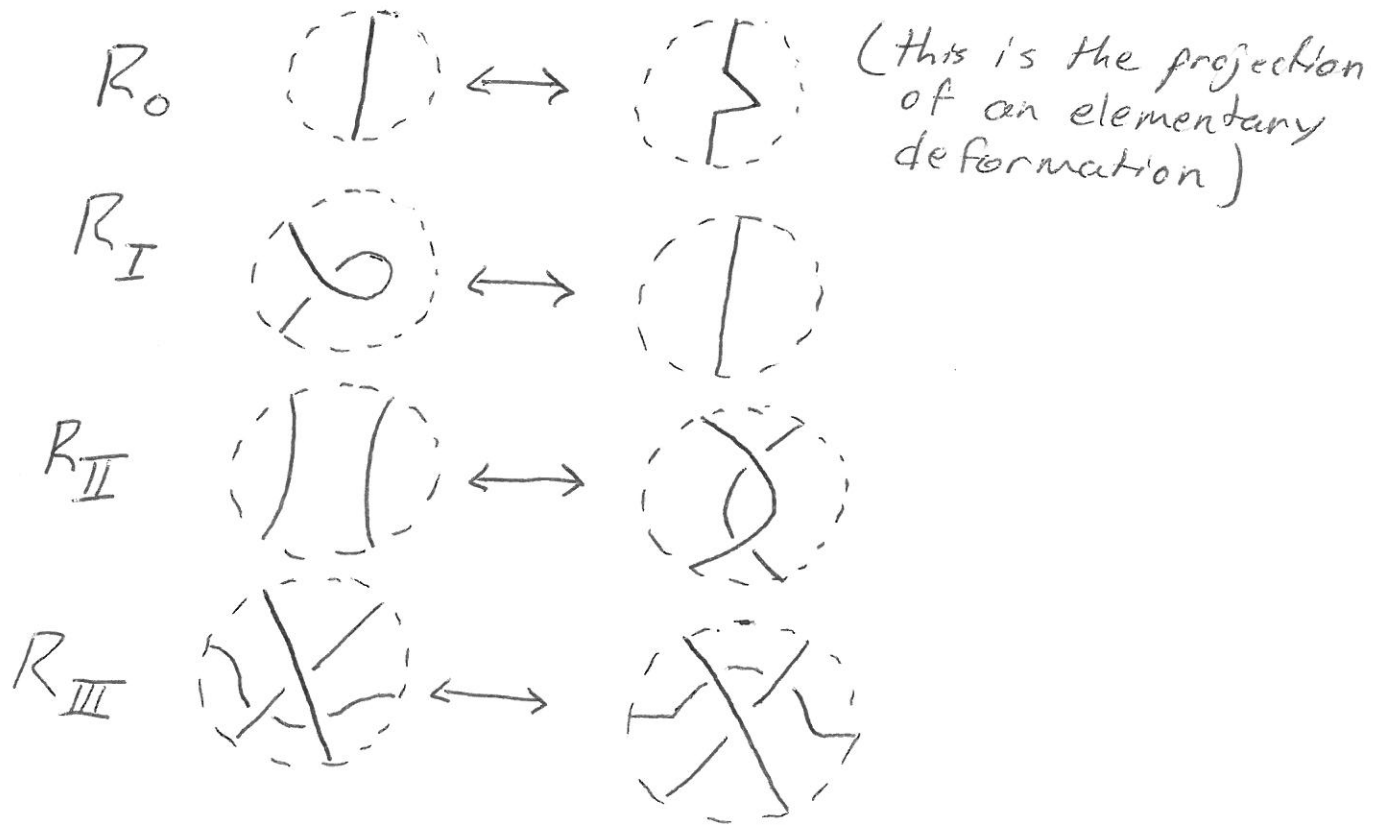 R₀ (this is the projection
of an elementary
deformation)
R_I
R_II
R_III